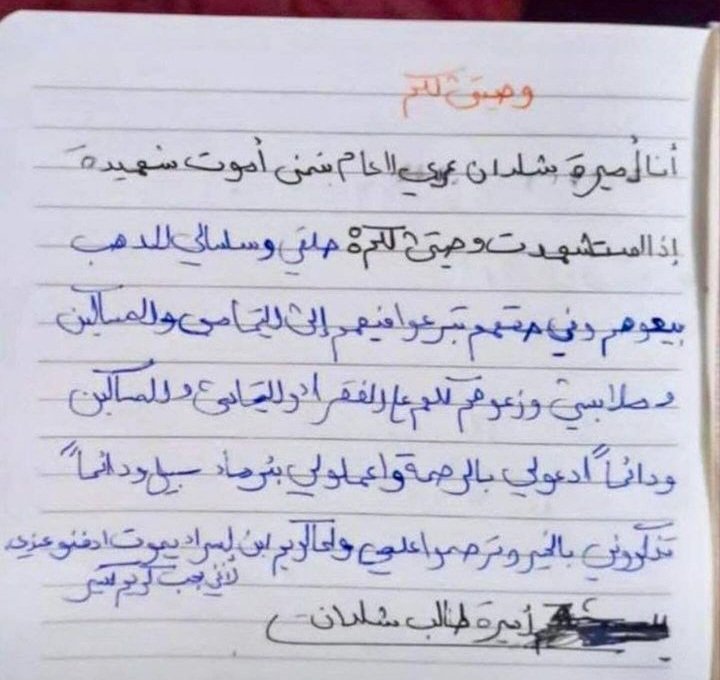 وصيتي لكم
أنا أميرة شلدان عمري العام بتمنى أموت شهيدة
إذا استشهدت وصيتي لكم حلقي وسلسالي الدهب
بيعوهم وفي حقهم تبرعوا فيهم إلى اليتامى والمساكين
وملابسي وزعوهم كلهم ع الفقراء واليتامى والمساكين
ودائماً ادعولي بالرحمة واعملولي بئر ماء سبيل ودائماً
تذكروني بالخير وترحموا علي ولما كريم ابن إسراء يموت ادفنو عندي
لأني بحب كريم كتير
أميرة طالب شلدان